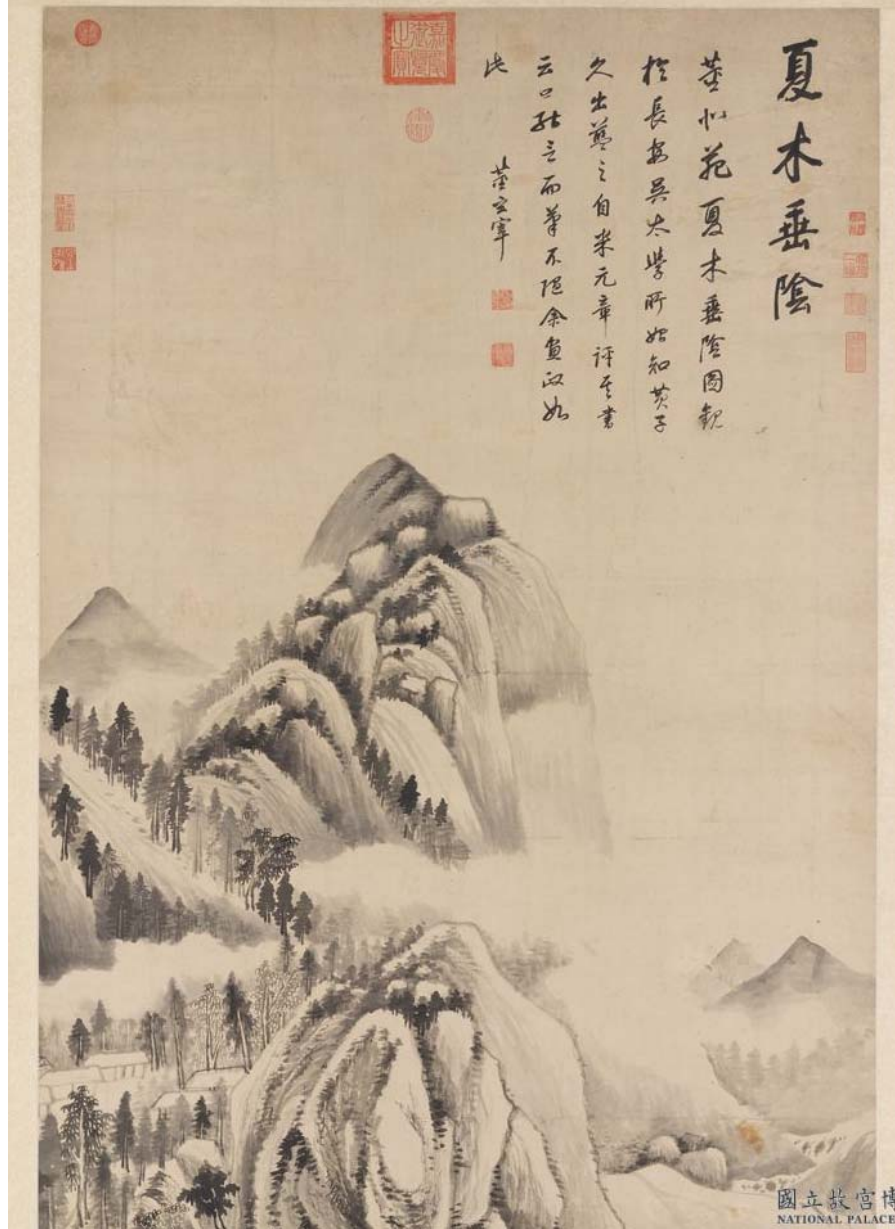 夏木垂陰
董北苑夏木垂陰圖觀
於長安吳太學所始知黃子
久出藍之自米元章評其書
云口能言而筆不隨余畫政如
此 董玄宰
嘉慶御覽之寶
國立故宮博
NATIONAL PALACE